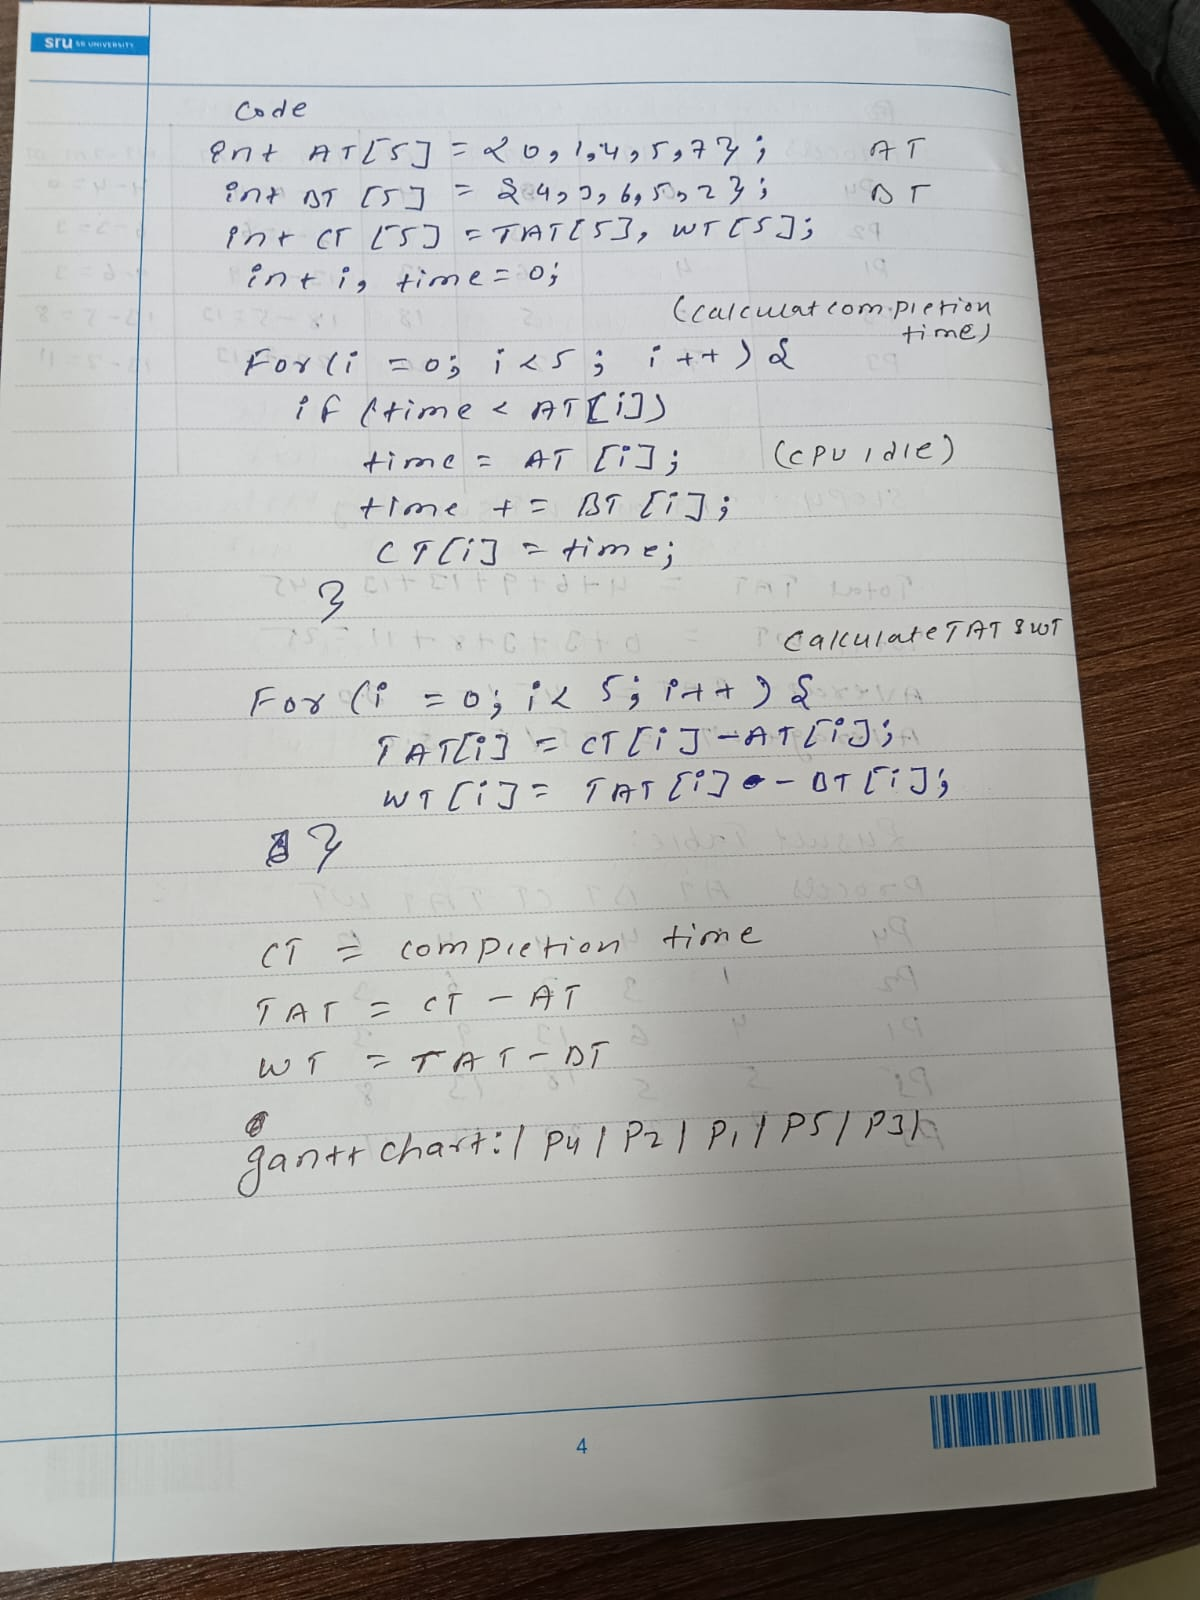 sru SR UNIVERSITY
Code
int AT[5] = {0,1,4,5,7}; AT
int BT [5] = {4,3,6,5,2}; BT
int CT [5] = TAT[5], WT[5];
int i, time = 0;
(calculat completion
time)
For (i = 0; i < 5; i++) {
if (time < AT[i])
time = AT [i]; (CPU idle)
time += BT [i];
CT[i] = time;
}
Calculate TAT & WT
For (i = 0; i < 5; i++) {
TAT[i] = CT[i] - AT[i];
WT[i] = TAT[i] - BT[i];
}
CT = completion time
TAT = CT - AT
WT = TAT - BT
gantt chart: | P4 | P2 | P1 | P5 | P3 |
4